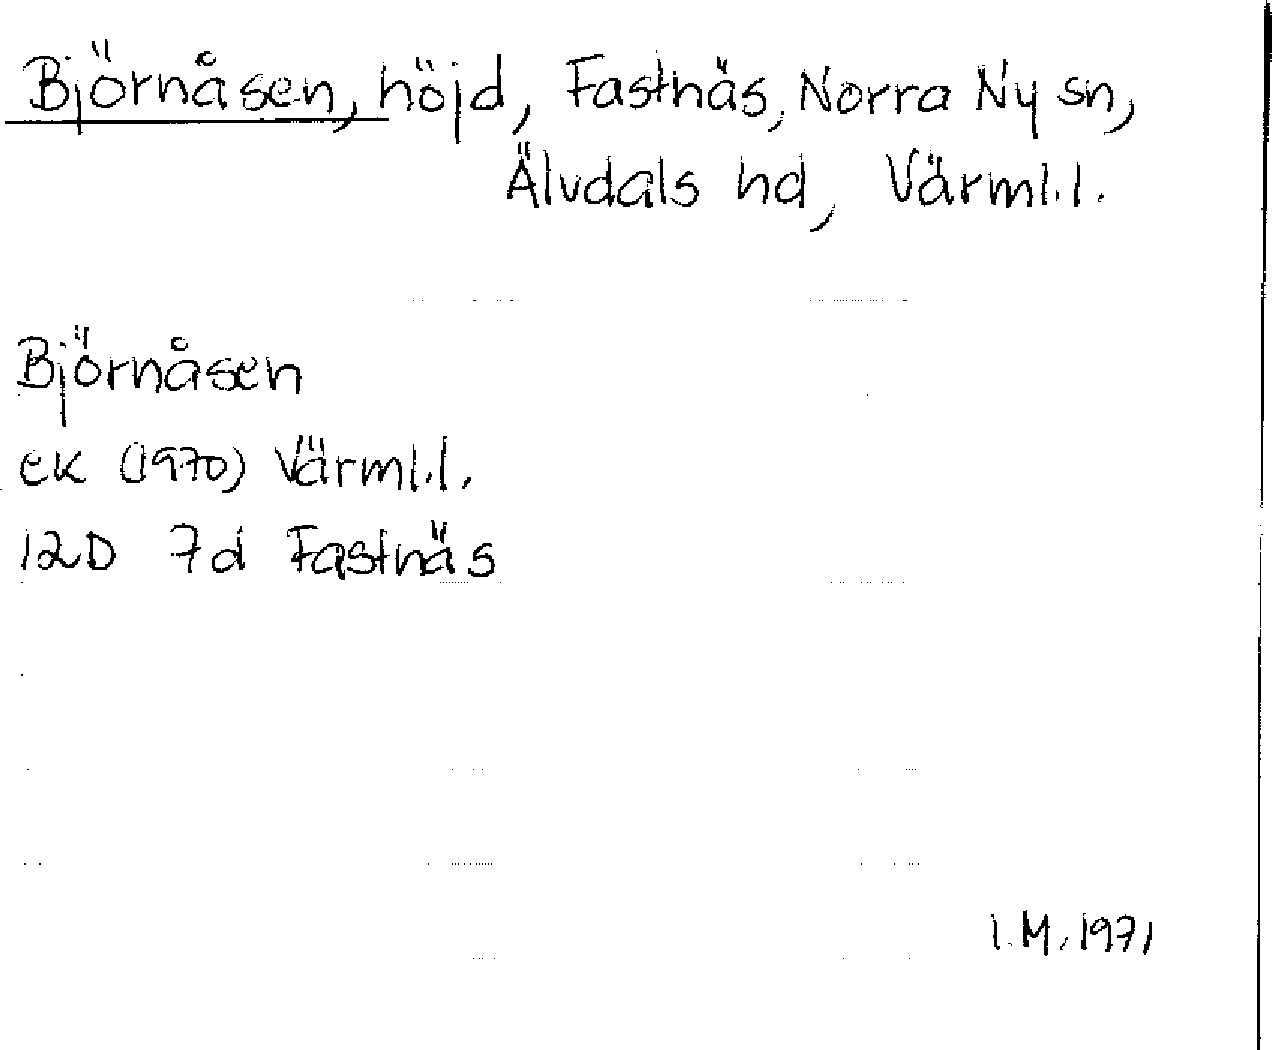 Björnåsen, höjd, Fastnäs, Norra Ny sn,
Älvdals hd, Värml.l.
Björnåsen
ek (1970) Värml.l.
12D 7d Fastnäs
I.M. 1971